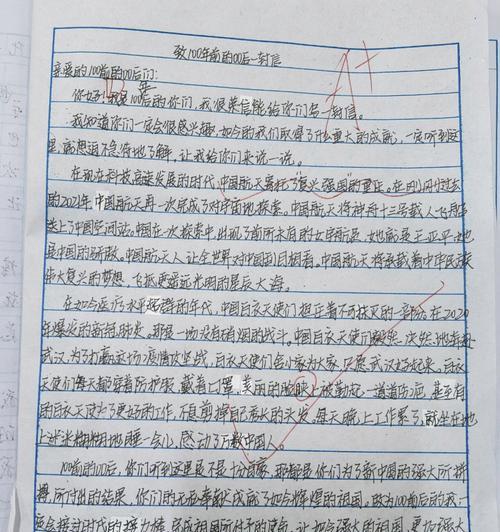 致100年前的00后一封信
亲爱的100年前的00后们:
你好!我是100后的你们,我很荣信能给你们写一封信。
我知道你们一定会很感兴趣,如今的我们取得了什么重大的成就,一定听到这
里,就想迫不急待地了解,让我给你们来说一说。
在现在科技高速发展的时代,中国航天寄托了"复兴强国"的重任。在刚刚过去
的2021年中国航天再一次完成了对宇宙地探索。中国航天将神舟十三号载人飞船
送上了中国空间站。中国在一次探索中,出现了前所未有的女宇航员,她就是王亚平,她
是中国的骄傲。中国航天人让全世界对中国刮目相看。中国航天将承载着中华民族
伟大复兴的梦想,飞抵更遥远光明的星辰大海。
在如今医疗水平的年代,中国白衣天使们担任着不可抹灭的。在2020
年爆发的新冠肺炎。那是一场没有硝烟的战斗。中国白衣天使们毅然、决然地奔赴
武汉,为了打赢这场疫情攻坚战,白衣天使们舍小家为大家,只愿武汉好起来。白衣
天使们每天都穿着防护服,戴着口罩,美丽的脸上被勒起一道道伤痕,甚至有
的白衣天使为了更好的工作,不自剪掉自己秀人的头发,每天晚上工作累了,就坐在地
上迷迷糊糊地睡一会儿,感动了万数中国人。
100前的00后,你们听到这里是不是十分自豪,那都是你们为了新中国的强大所拼
搏,所付出的结果。你们的无形奉献成就了如今辉煌的祖国。做为100前后的我一
定会接过时代的接力棒,完成祖国所付予的使命,让祖国更加强大